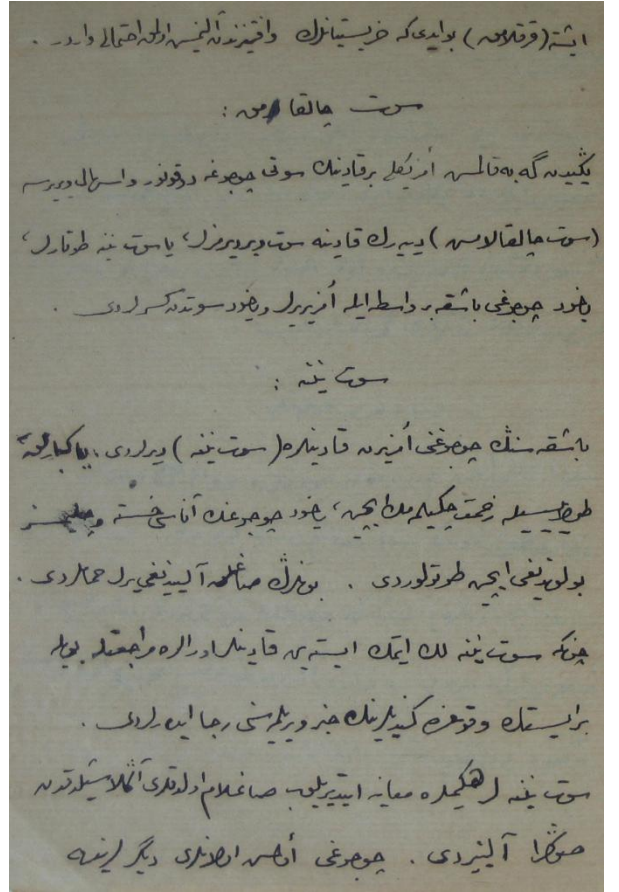 ایشته (قرقلامه) بو ایدی که خرستیانلرك وافتیزندن آلنمش اولمق احتمالی واردر .
سوت چالقامه :
یکیدن گبه قالمش أمزیكلی برقادینك سوتی چوجوغه دوقونور واسهالی ویریرسه
(سوت چالقالامش) دییه رك قادینه سوت ویردیرمزلر، یا سوت نینه طوتارلر،
یاخود چوجوغی باشقه بر واسطه ایله أمزیریرلر ویاخود سوتدن کسرلردی .
سوت نینه :
باشقه سنك چوجوغنی أمزیرن قادینلره (سوت نینه) دیرلردی . یا کبارلق
زحمت چکیلمه مك ایچون، یاخود چوجوغك آناسی خسته
بولوندیغی ایچون طوتولوردی . بونلرك صاغلام آلیندیغی یرلر حماملردی .
چونكه سوت نینه لك ایتمك ایسته ین قادینلر اورالره مراجعتله بویله
بر ایستك وقوعنده کندیلرینه خبر ویریلمه سنی رجا ایدرلردی .
سوت نینه لر هکیملره معاینه ایتدیریلوب صاغلام اولدقلری آکلاشیلدقدن
صوکرا آلینیردی . چوجوغی أولمش اولانلری دیگرلرینه